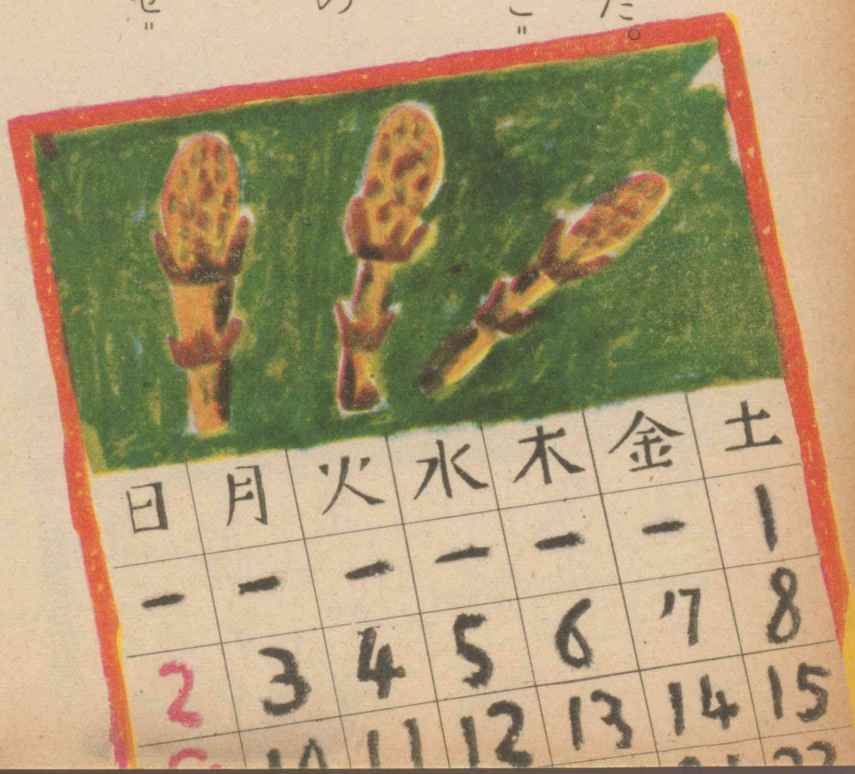 た。
ど
の
ぜ
日 月 火 水 木 金 土
— — — — — — 1
2 3 4 5 6 7 8
10 11 12 13 14 15